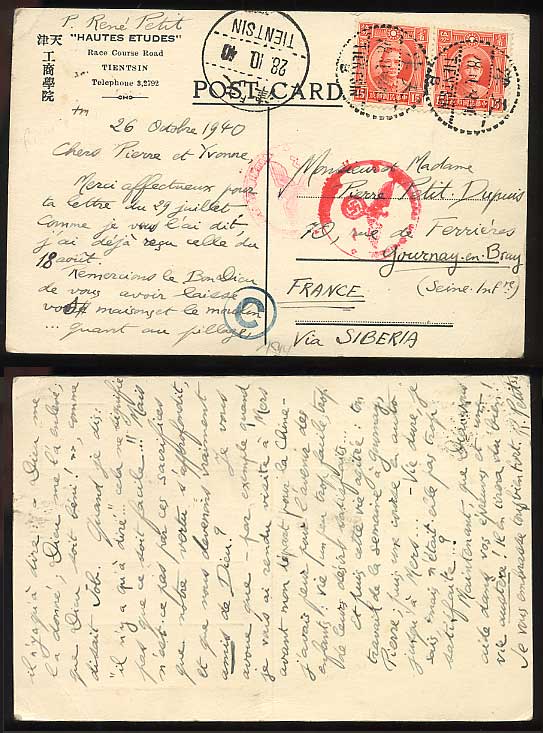 P. René Petit
"HAUTES ETUDES"
Race Course Road
TIENTSIN
Telephone 3,2792
天津
工商學院
TIENTSIN
28.10.40
POST CARD
26 Octobre 1940
Chers Pierre et Yvonne,
Merci affectueux pour
ta lettre du 29 juillet.
Comme je vous l'ai dit,
j'ai déjà reçu celle du
18 août.
Remercions le Bon Dieu
de vous avoir laissé
maison et le moulin
... quant au pillage,
Monsieur et Madame
Pierre Petit Dupuis
rue de Ferrières
Gournay-en-Bray
FRANCE (Seine-Infre)
Via SIBERIA
C
il n'y a qu'à dire "Dieu me
l'a donné; Dieu me l'a enlevé;
que Dieu soit béni!", comme
disait Job. Quand je dis:
"il n'y a qu'à dire" cela ne signifie
pas que ce soit facile!! Mais
n'est-ce pas par ces sacrifices
que notre vertu s'approfondit,
et que nous devenons vraiment
amis de Dieu? Je vous
avoue que - par exemple quand
je vais ai rendu visite à Mers
avant mon départ pour la Chine -
j'avais peur pour l'avenir des
enfants: vie un peu trop facile, trop
de leurs désirs satisfaits...
Et puis cette vie agitée: on
travail de la semaine à Gournay,
Pierre; puis une course en auto
jusqu'à Mers... - Vie dure, je
sais; mais n'était-elle pas trop
satisfaite?
Maintenant, que Dieu vous
aide dans vos épreuves et votre
vie austère! Il en tirera du bien!
Je vous embrasse tous bien fort. R. Petit